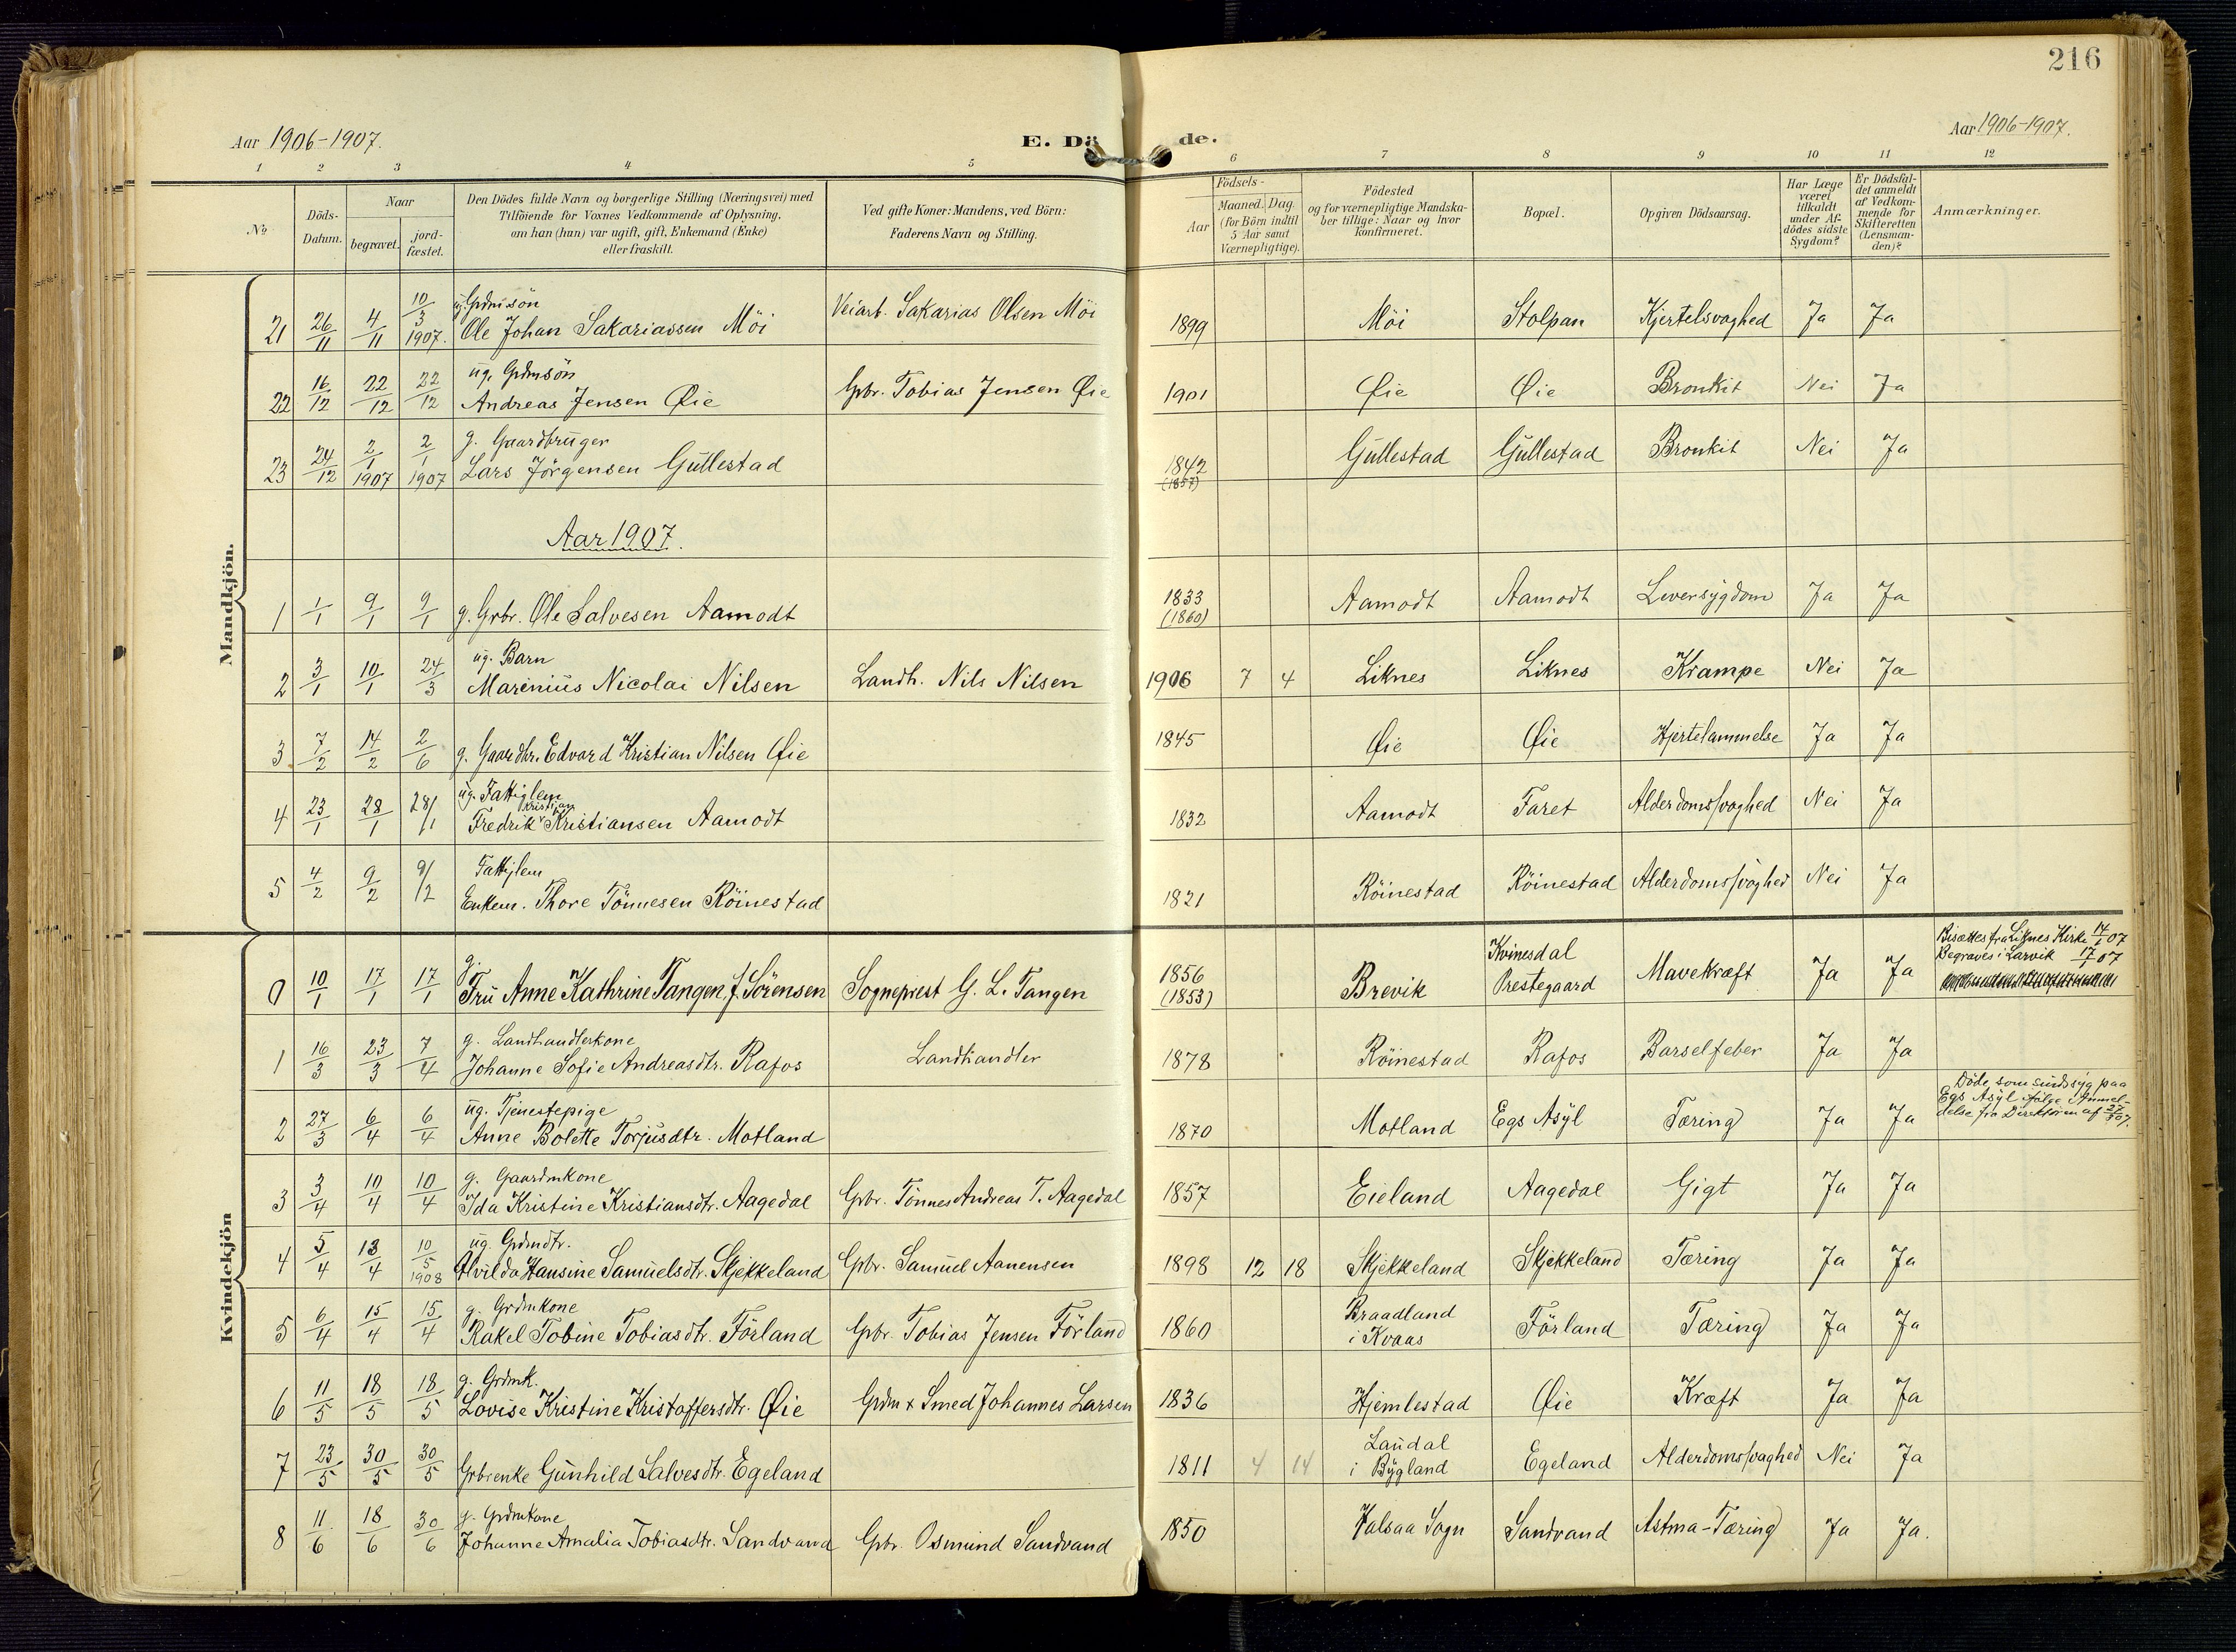 216
Aar 1906-1907.
E. Dö de.
Aar 1906-1907.
1 2 3 4 5 6 7 8 9 10 11 12
No
Döds-Datum.
Naar
begravet.
jord-fæstet.
Den Dödes fulde Navn og borgerlige Stilling (Næringsvei) med
Tilföiende for Voxnes Vedkommende af Oplysning,
om han (hun) var ugift, gift, Enkemand (Enke)
eller fraskilt.
Ved gifte Koner: Mandens, ved Börn:
Faderens Navn og Stilling.
Födsels-
Aar
Maaned. Dag.
(for Börn indtil
5 Aar samt
Værnepligtige).
Födested
og for værnepligtige Mandska-
ber tillige: Naar og hvor
konfirmeret.
Bopæl.
Opgiven Dödsaarsag.
Har Læge
været
tilkaldt
under Af-
dödes sidste
Sygdom?
Er Dödsfal-
det anmeldt
af Vedkom-
mende for
Skifteretten
(Lensman-
den)?
Anmærkninger.
Mandkjön.
ug. Grdmsön
21 26/11 4/11 10/3 1907. Ole Johan Sakariassen Möi Veiarb. Sakarias Olsen Möi 1899 Möi Stolpan Kjertelsvaghed Ja Ja
ug. Grdmsön
22 16/12 22/12 22/12 Andreas Jensen Øie Gbr. Tobias Jensen Øie 1901 Øie Øie Bronkit Nei Ja
g. Gaardbruger
23 24/12 2/1 1907 2/1 1907 Lars Jörgensen Gullestad 1842 (1857) Gullestad Gullestad Bronkit Nei Ja
Aar 1907.
1 1/1 9/1 9/1 g. Grbr. Ole Salvesen Aamodt 1833 (1860) Aamodt Aamodt Leversygdom Ja Ja
ug. Barn
2 3/1 10/1 24/3 Marinius Nicolai Nilsen Landh. Nils Nilsen 1906 7 4 Liknes Liknes Krampe Nei Ja
3 7/2 14/2 2/6 g. Gaardbr. Edvard Kristian Nilsen Øie 1845 Øie Øie Hjertelammelse Ja Ja
ug. Fattiglem
Kristian
4 23/1 28/1 28/1 Fredrik Kristiansen Aamodt 1832 Aamodt Faret Alderdomssvaghed Nei Ja
Fattiglem
5 4/2 9/2 9/2 Enkem. Thore Tönnesen Röinestad 1821 Röinestad Röinestad Alderdomssvaghed Nei Ja
Kvindekjön
g.
0 10/1 17/1 17/1 Fru Anne Kathrine Tangen, f. Sörensen Sogneprest G. L. Tangen 1856 (1853) Brevik Kvinesdal Prestegaard Mavekræft Ja Ja Bisættes fra Liknes Kirke 14/1 07
Begraves i Larvik 17/1 07
g. Landhandlerkone
1 16/3 23/3 7/4 Johanne Sofie Andreasdtr. Rafos Landhandler 1878 Röinestad Rafos Barselfeber Ja Ja
ug. Tjenestepige
2 27/3 6/4 6/4 Anne Bolette Torjusdtr. Motland 1870 Motland Egs Asyl Tæring Ja Ja Döde som sindssyg paa
Egs Asyl ifölge Anmel-
delse fra Direktören af 27/3 07.
g. Gaardmkone
3 3/4 10/4 10/4 Ida Kristine Kristiansdtr. Aagedal Gbr. Tönnes Andreas T. Aagedal 1857 Eieland Aagedal Gigt Ja Ja
ug. Grdmdtr.
4 5/4 13/4 10/5 1908 Alvilda Hansine Samuelsdtr. Skjekkeland Gbr. Samuel Aanensen 1898 12 18 Skjekkeland Skjekkeland Tæring Ja Ja
g. Grdmkone
5 6/4 15/4 15/4 Rakel Tobine Tobiasdtr. Förland Gbr. Tobias Jensen Förland 1860 Braadland i Kvaas Förland Tæring Ja Ja
g. Grdmk.
6 11/5 18/5 18/5 Lovise Kristine Kristoffersdtr. Øie Grdm + Smed Johannes Larsen 1836 Hjemlestad Øie Kræft Ja Ja
7 23/5 30/5 30/5 Grbrenke Gunhild Salvesdtr. Egeland 1811 4 14 Laudal i Bygland Egeland Alderdomssvaghed Nei Ja
g. Grdmkone
8 11/6 18/6 30/6 Johanne Amalia Tobiasdtr. Sandvand Gbr. Osmund Sandvand 1850 Valsaa Sogn Sandvand Astma-Tæring Ja Ja.